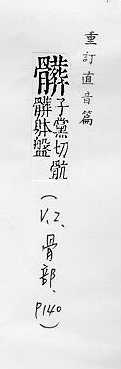 重訂直音篇
髒
子黨切骯
髒躰盤
(V.2、骨部、P140)